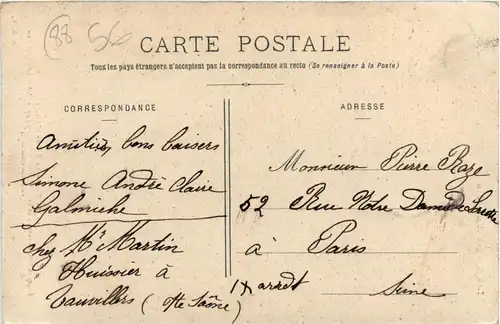 88 56
CARTE POSTALE
Tous les pays étrangers n'acceptent pas la correspondance au recto (Se renseigner à la Poste)
CORRESPONDANCE
Amitiés, bons baisers
Simone André Claire
Galmiche
chez Mr Martin
Huissier à
Vauvillers (Hte Saône)
ADRESSE
Monsieur Pierre Raze
52 Rue Notre Dame de Lorette
à Paris
IX arrdt Seine